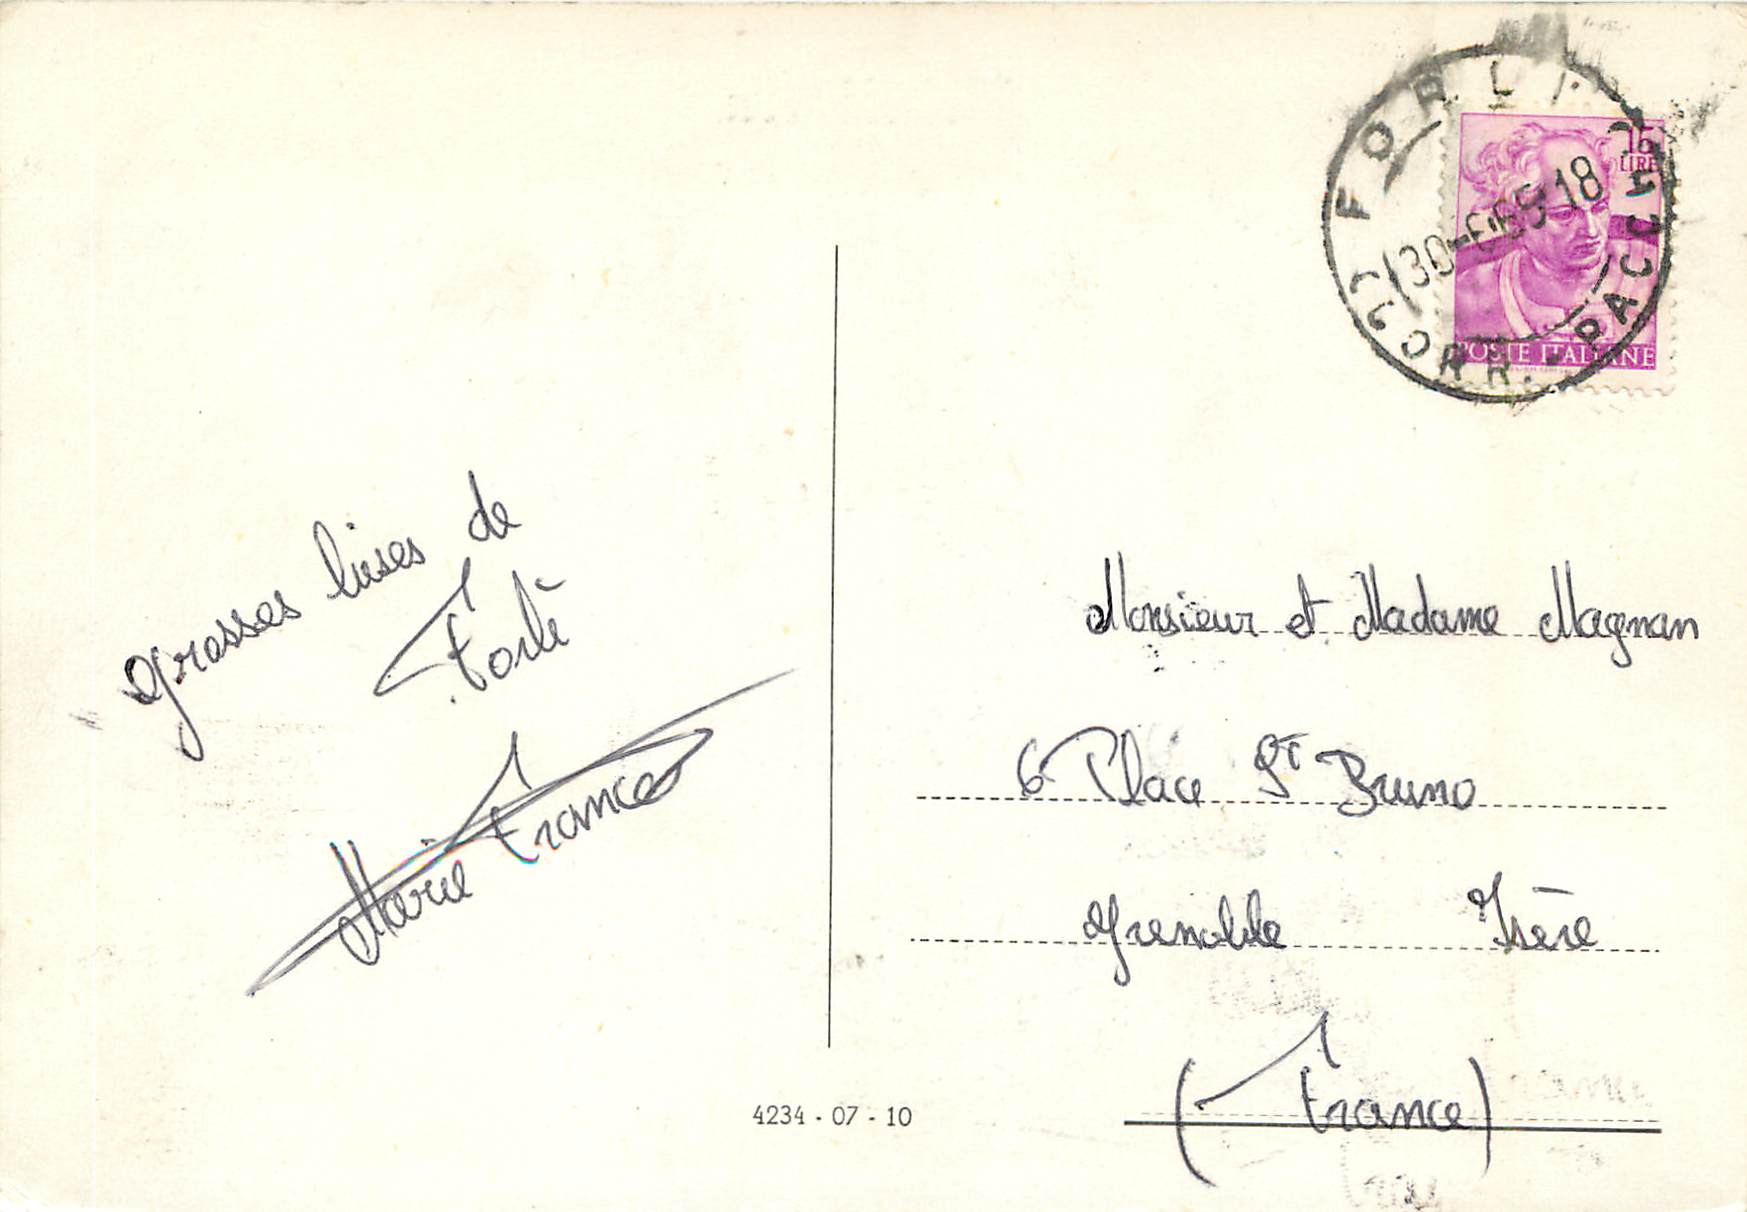 FORLI
CORR. - PACCHI
30-6-65 18
15
LIRE
POSTE ITALIANE
grosses bises de
Forli
Marie France
Monsieur et Madame Magnan
6 Place St Bruno
Grenoble Isère
(France)
4234 - 07 - 10